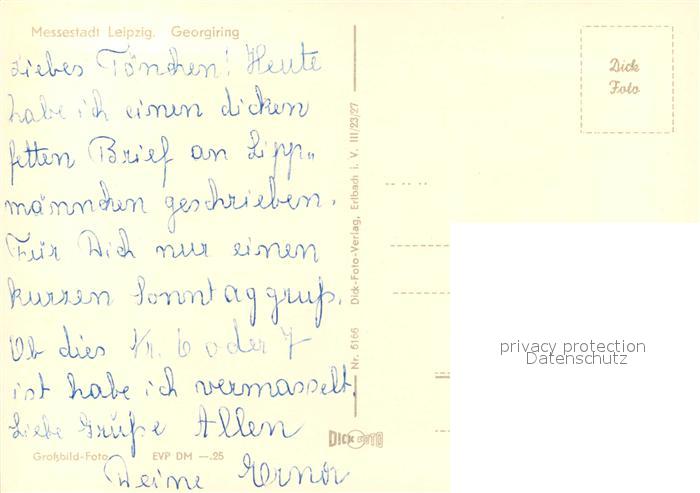 Messestadt Leipzig. Georgiring
Liebes Tönchen! Heute
habe ich einen dicken
fetten Brief an Lipp„
männchen geschrieben.
Für Dich nur einen
kurzen Sonntaggruß.
Ob dies Nr. 6 oder 7
ist habe ich vermasselt.
Liebe Grüße Allen
Deine
Großbild-Foto EVP DM —.25
Nr. 5166 Dick-Foto-Verlag, Erlbach i. V. III/23/27
DICK FOTO
Dick
Foto
privacy protection
Datenschutz